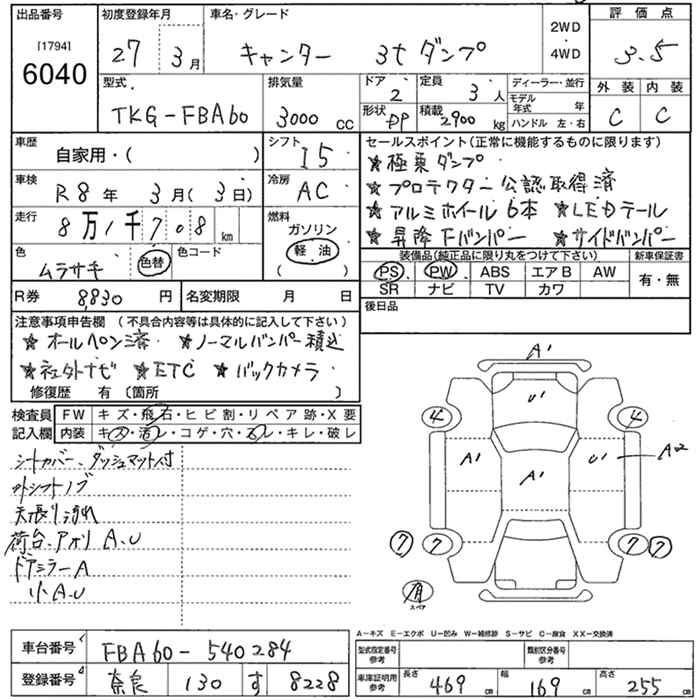 出品番号 初度登録年月 車名・グレード 2WD 評価点
[1794] 27 3月 キャンター 3tダンプ ・4WD 3.5
6040
型式 排気量 ドア 定員 ディーラー・並行 外装 内装
TKG-FBA60 3000 CC 2 3人 モデル年式 年 C C
形状 DP 積載 2900 kg ハンドル 左・右
車歴 自家用・( ) シフト I5 セールスポイント(正常に機能するものに限ります)
★極東ダンプ
車検 R8年 3月(3日) 冷房 AC ★プロテクター公認取得済
走行 8万1千708 km 燃料 ガソリン ★アルミホイール6本 ★LEDテール
軽油 ( ) ★昇降Fバンパー ★サイドバンパー
色 ムラサキ 色替 色コード
装備品(純正品に限り丸をつけて下さい) 新車保証書
PS PW ABS エアB AW 有・無
SR ナビ TV カワ
R券 8,830円 名変期限 月 日 後日品
注意事項申告欄(不具合内容等は具体的に記入して下さい)
★オールペン済 ★ノーマルバンパー積込
★社外ナビ ★ETC ★バックカメラ
修復歴 有(箇所 )
検査員 FW キズ・飛石・ヒビ割・リペア跡・X要
記入欄 内装 キズ・汚レ・コゲ・穴・スレ・キレ・破レ
シートカバー、ダッシュマット付
外シフトノブ
天張り汚れ
荷台、アオリ A.U
ドアミラーA
小A.U
A1
U1
4 4
A1 A1 U1 A2
7 7 7 7
有
スペア
A-キズ E-エクボ U-凹み W-補修跡 S-サビ C-腐食 XX-交換済
車台番号 FBA60-540284 型式指定番号 参考 類別区分番号 参考
登録番号 奈良 130 す 8228 車庫証明用 参考 長さ 469 cm 幅 169 cm 高さ 255 cm